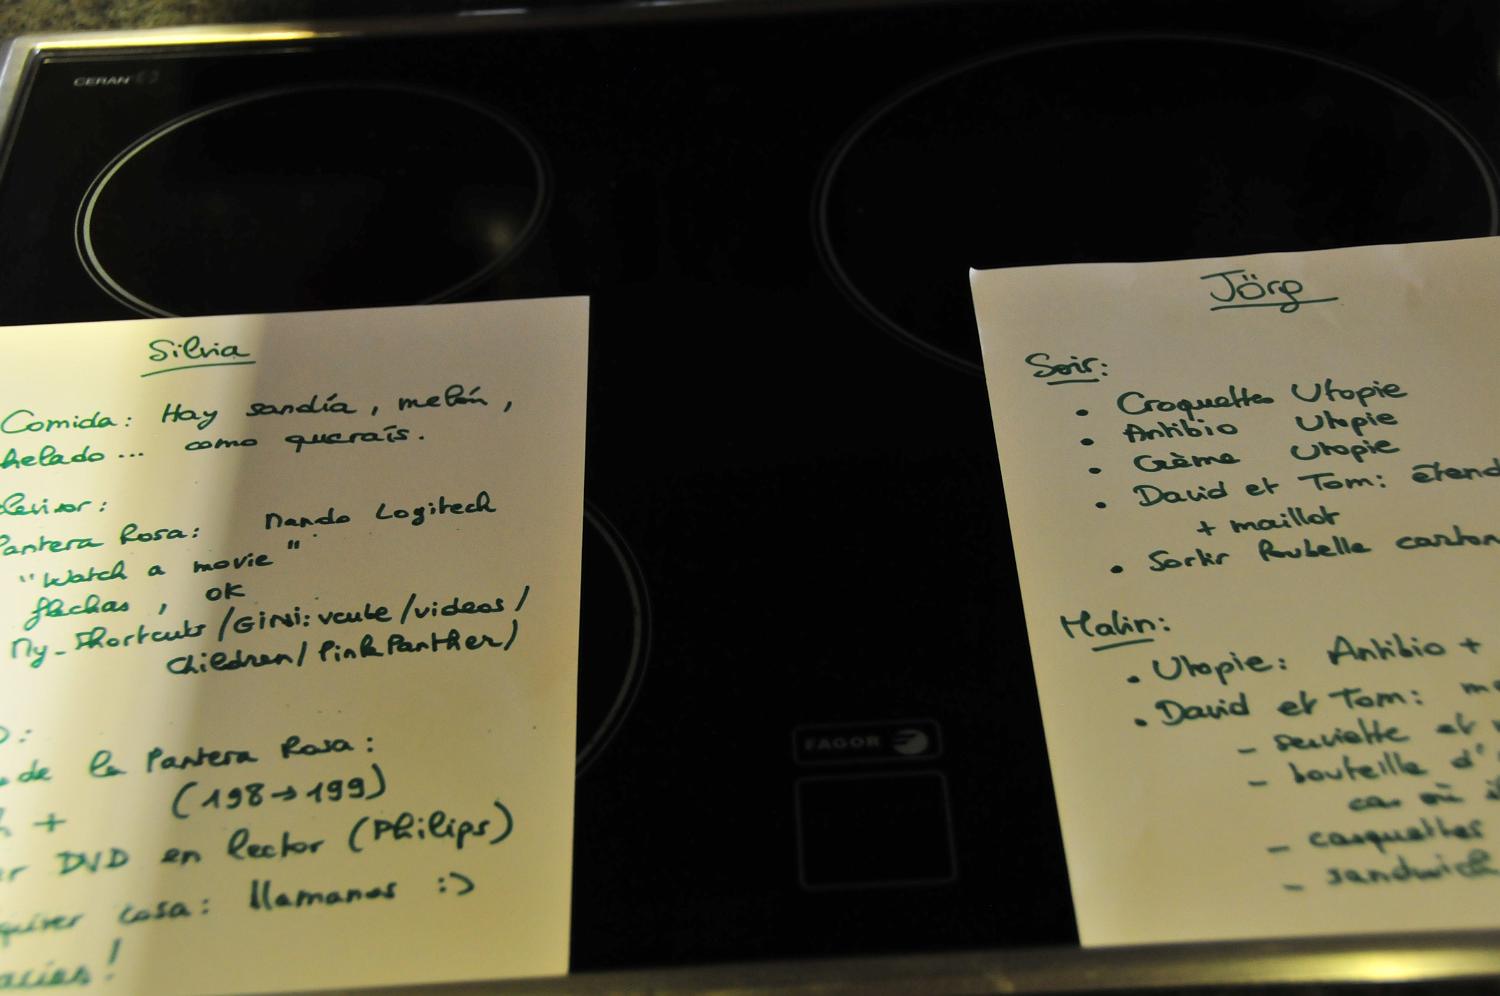 CERAN
Silvia
Comida: Hay sandía, melón,
helado... como queraís.
Pantera Rosa: Mando Logitech
"Watch a movie"
flechas, OK
My_Shortcuts/GINI:vcube/videos/
Children/PinkPanther/
de la Pantera Rosa:
+ (198→199)
DVD en lector (Philips)
casa: llamanos :>
FAGOR
Jörg
Soir:
• Croquettes Utopie
• Antibio Utopie
• Crème Utopie
• David et Tom: étend
+ maillot
• Sortir Poubelle carton
Matin:
• Utopie: Antibio +
• David et Tom:
- serviette et
- bouteille d'
cas où
- casquettes
- sandwich